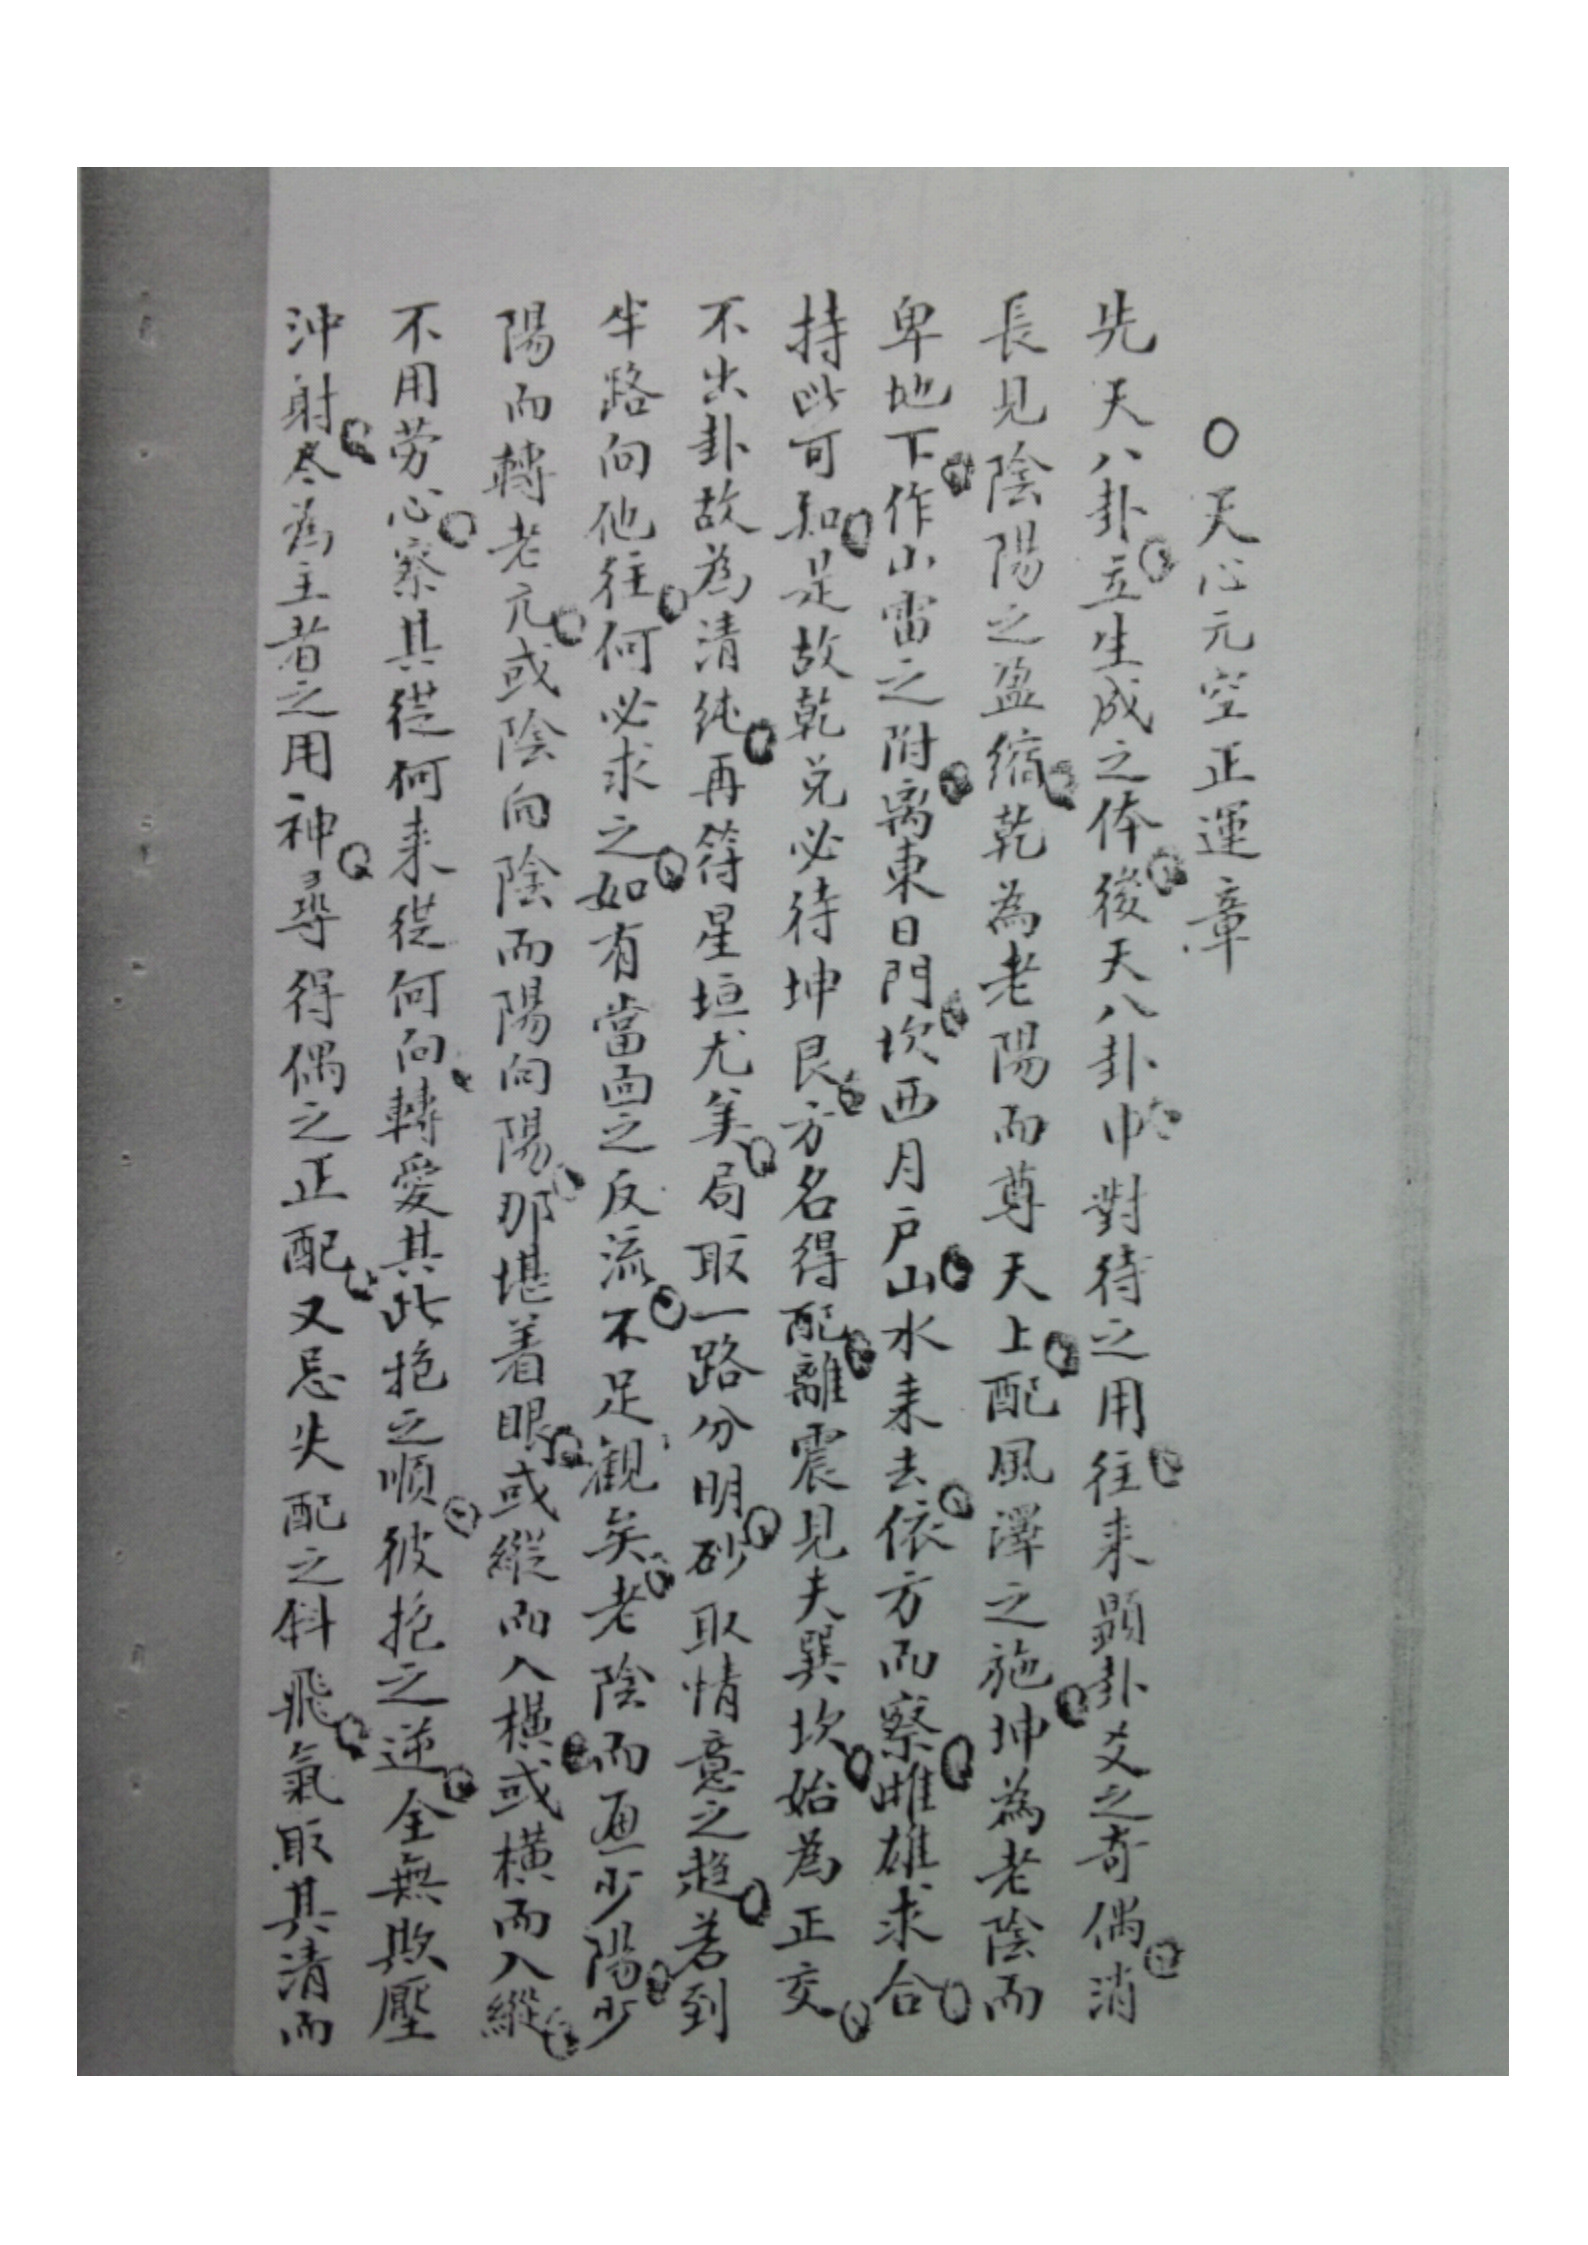 ○天心元空正運章
先天八卦立生成之体後天八卦中對待之用往来顕卦爻之奇偶消
長見陰陽之盈縮乾為老陽而尊天上配風澤之施坤為老陰而
卑地下作山雷之附离東日門坎西月户山水来去依方而察雌雄求合
持此可知是故乾兑必待坤艮方名得配離震見夫巽坎始為正交
不出卦故為清純再符星垣尤美局取一路分明砂取情意之趋若到
半路向他往何必求之如有當面之反流不足観矣老陰而遇少陽少
陽而轉老亢或陰向陰而陽向陽那堪着眼或縱而入橫或橫而入縱
不用劳心察其從何来從何向轉愛其此抱之順彼抱之逆全無欺壓
沖射尽為主者之用神尋得偶之正配又忌失配之斜飛氣取其清而